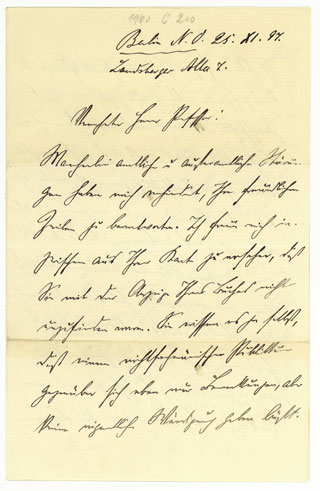 1960 C 210
Berlin N. O. 25. XI. 97.
Landsberger Allee 7.
Verehrter Herr Professor!
Mancherlei amtliche u. außeramtliche Störun-
gen haben mich verhindert, Ihre freundlichen
Zeilen zu beantworten. Ich freue mich in-
zwischen aus Ihrer Karte zu ersehen, daß
Sie mit der Anzeige Ihres Buches nicht
unzufrieden waren. Sie wissen es ja selbst,
daß einem Publikum
gegenüber sich eben nur Bemerkungen, aber
keine eigentliche geben läßt.